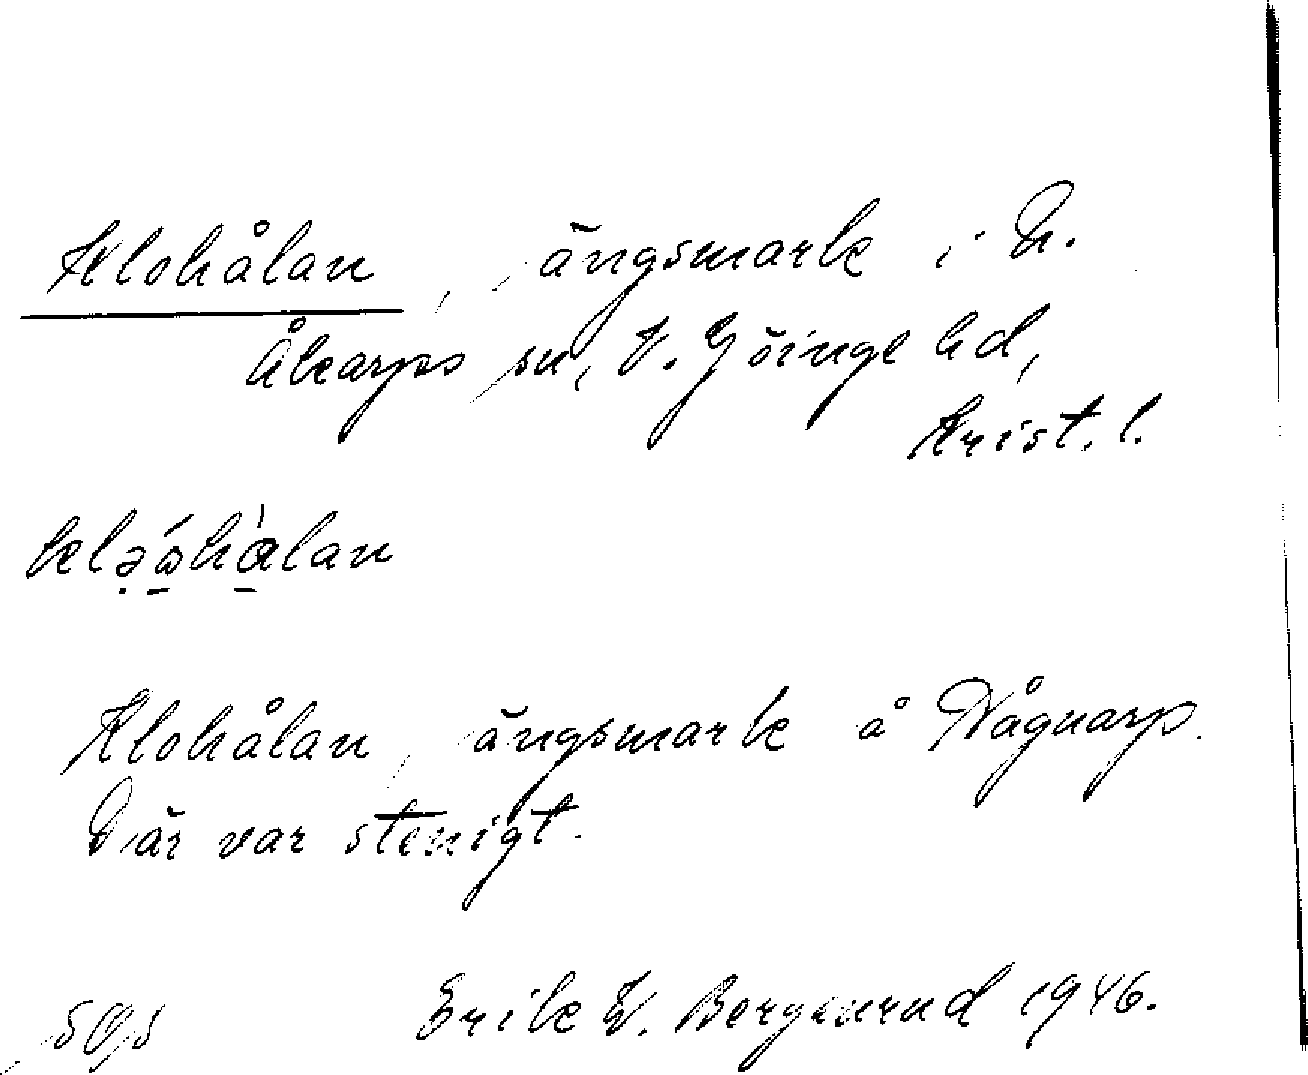 Klohålan, ängsmark i N.
Åkarps sn, V. Göinge hd,
Krist. l.
Klohålan, ängsmark å Någnarp.
Där var stenigt.
Erik W. Bergenrud 1946.